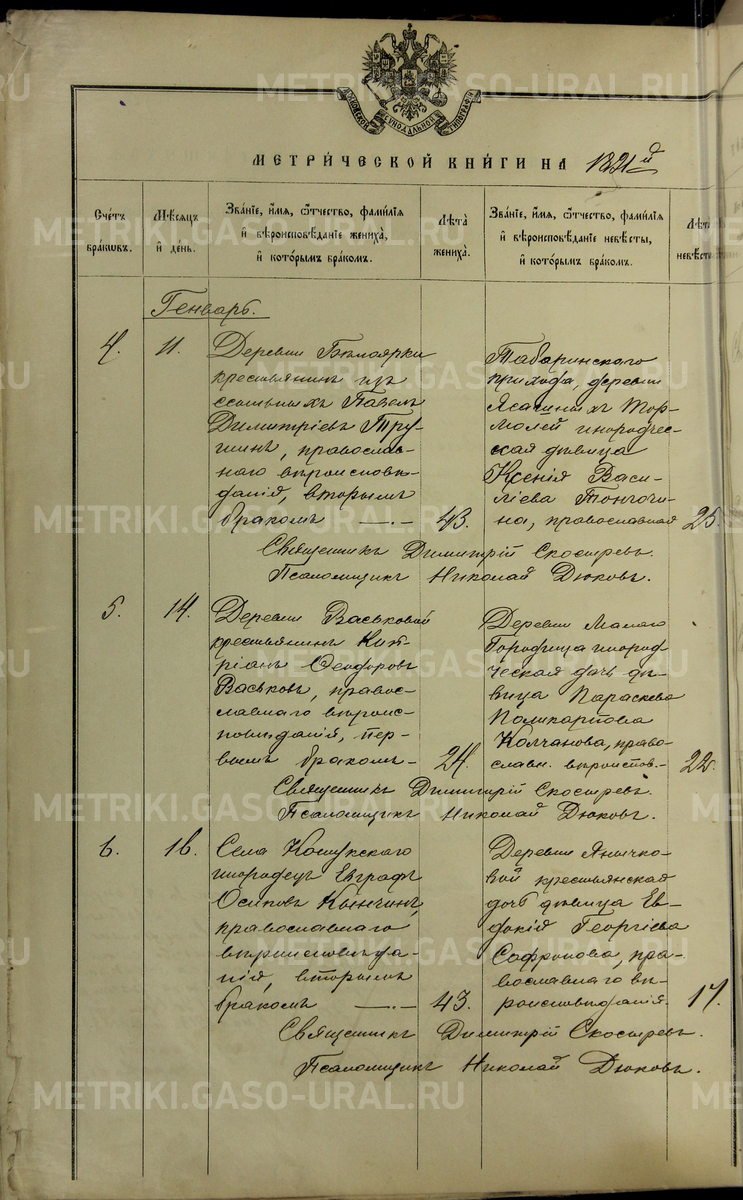 МОСКОВСКОЙ СѴНОДАЛЬНОЙ ТИПОГРАФІИ
МЕТРИ́ЧЕСКОЙ КНИ́ГИ НА 1891й
Сче́тъ бра́кωвъ.
Мѣ́сѧцъ и҆ де́нь.
Зва́нїе, и҆́мѧ, ѻ҆́тчество, фами́лїѧ
и҆ вѣроисповѣ́данїе жениха̀,
и҆ кото́рымъ бра́комъ.
Лѣта̀ жениха̀.
Зва́нїе, и҆́мѧ, ѻ҆́тчество, фами́лїѧ
и҆ вѣроисповѣ́данїе невѣ́сты,
и҆ кото́рымъ бра́комъ.
Лѣта̀ невѣ́сты
Генварь.
4.
11.
Деревни Бѣлоярки
крестьянинъ изъ
ссыльныхъ Павелъ
Димитріевъ Тру-
шинъ, православ-
наго вѣроисповѣ-
данія, вторымъ
бракомъ —.—
43.
Табаринскаго
прихода, деревни
Ясашныхъ Тор-
молей инородчес-
кая дѣвица
Ксенія Васи-
ліева Тонгочи-
на, православная
25.
Священникъ Димитрій Скосыревъ.
Псаломщикъ Николай Дюковъ.
5.
14.
Деревни Васьковой
крестьянинъ Кип-
ріанъ Ѳеодоровъ
Васьковъ, правос-
лавнаго вѣроис-
повѣданія, пер-
вымъ бракомъ-
24.
Деревни Малаго
Городища инород-
ческая дочь дѣ-
вица Параскева
Поликарпова
Колчанова, право-
славн. вѣроиспов.-
22.
Священникъ Димитрій Скосыревъ.
Псаломщикъ Николай Дюковъ.
6.
16.
Села Кошукскаго
инородецъ Евграфъ
Осиповъ Кынчинъ,
православнаго
вѣроисповѣда-
нія, вторымъ
бракомъ —.—
43.
Деревни Янычко-
вой крестьянская
дочь дѣвица Ев-
докія Георгіева
Софронова, пра-
вославнаго вѣ-
роисповѣданія.
17.
Священникъ Димитрій Скосыревъ.
Псаломщикъ Николай Дюковъ.
METRIKI.GASO-URAL.RU